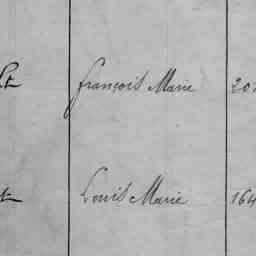 françois Marie 20
Louis Marie 164